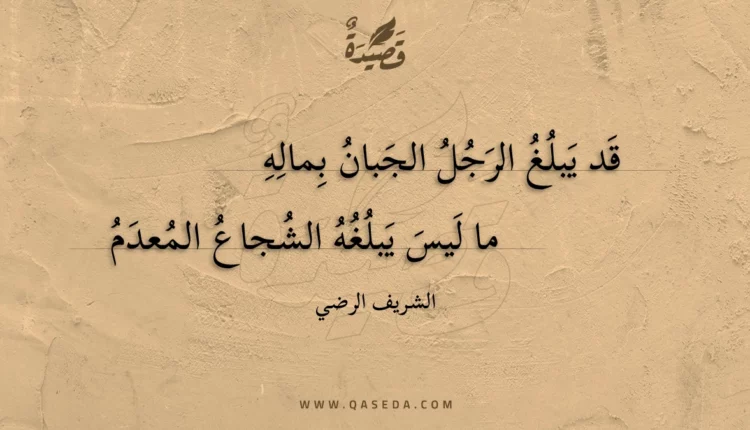 قَصِيدَةٌ
قَد يَبلُغُ الرَجُلُ الجَبانُ بِمالِهِ
ما لَيسَ يَبلُغُهُ الشُجاعُ المُعدَمُ
الشريف الرضي
WWW.QASEDA.COM